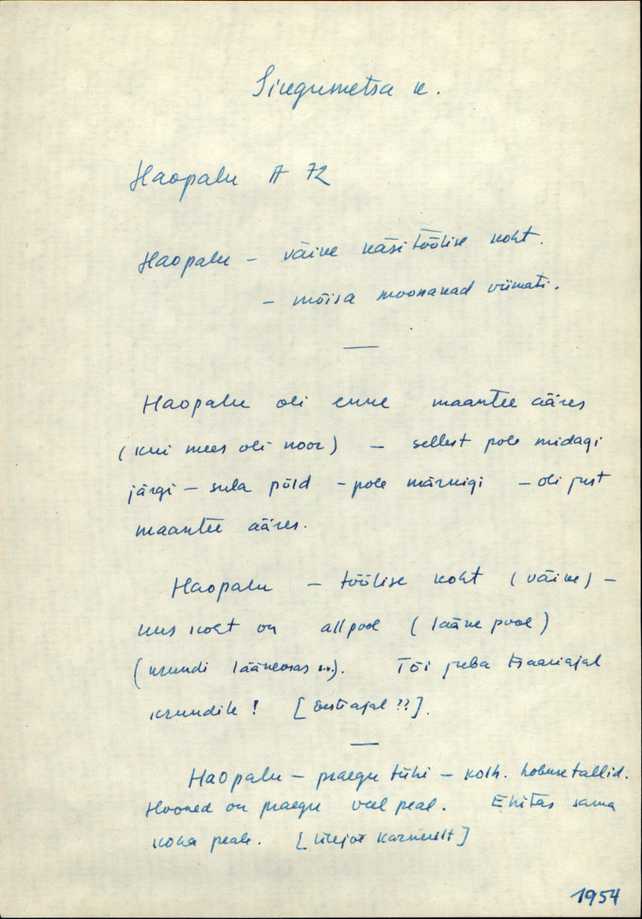 Sinegumetsa k.
Haopalu A 72
Haopalu - väike käsitöölise koht.
- mõisa moonakad viimati.
Haopalu oli enne maantee ääres
(kui mees oli noor) - sellest pole midagi
järgi - sula põld - pole märkigi - oli just
maantee ääres.
Haopalu - töölise koht (väike) -
uus koht on allpool (lääne pool)
(krundi lääneosas ...). Tõi juba tsaariajal
krundile! [Eesti ajal ??].
Haopalu - praegu tühi - kolh. hobusetallid.
Hooned on praegu veel peal. Ehitas sama
koha peale.
1954